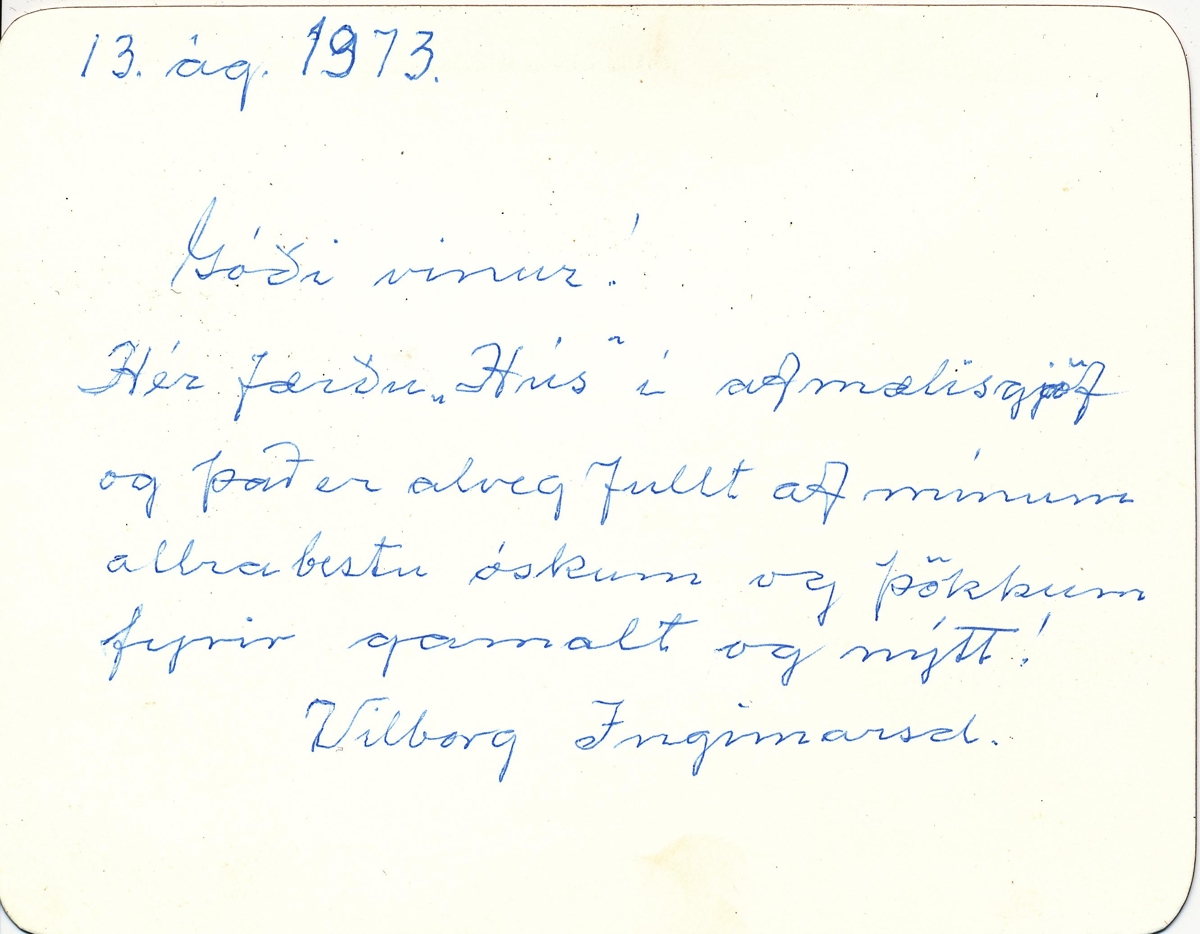 13. ág. 1973.
Góði vinur!
Hér færðu „Hús“ í afmælisgjöf
og það er alveg fullt af mínum
allrabestu óskum og þökkum
fyrir gamalt og nýtt!
Vilborg Ingimarsd.